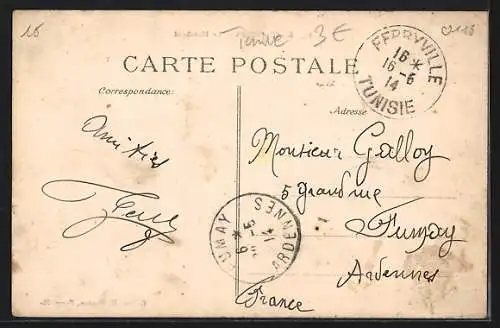 16
Tunisie
3€
CARTE POSTALE
FERRYVILLE
16 *
16-6
14
TUNISIE
Correspondance:
Adresse
Amitiés
Monsieur Galloy
5 Grand rue
Fumay
Ardennes
France
FUMAY
ARDENNES